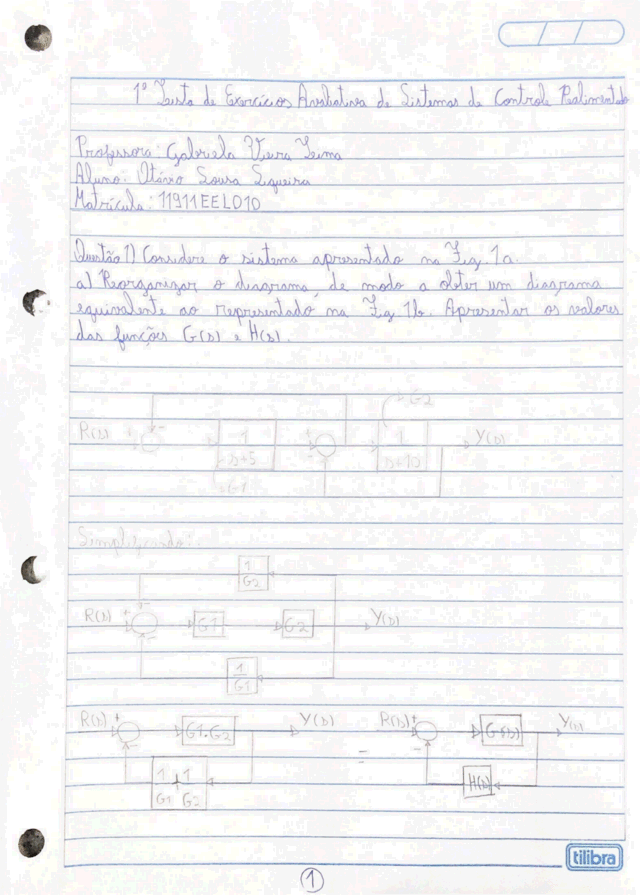 1º Lista de Exercícios Avaliativa de Sistemas de Controle Realimentado
Professora: Gabriela Vieira Lima
Aluno: Otávio Sousa Siqueira
Matrícula: 11911EEL010
Questão 1) Considere o sistema apresentado na Fig. 1a.
a) Reorganizar o diagrama, de modo a obter um diagrama
equivalente ao representado na Fig 1b. Apresentar os valores
das funções G(s) e H(s).
G2
R(s) + - 1 / s+5 - 1 / s+10 Y(s)
G1
Simplificando:
1 / G2
R(s) + - - G1 G2 Y(s)
1 / G1
R(s) + - G1.G2 Y(s) = R(s) + - G(s) Y(s)
1 / G1 + 1 / G2 H(s)
tilibra
1